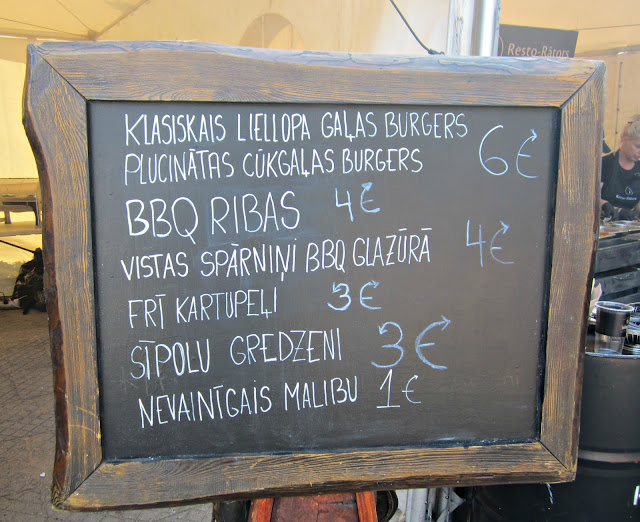 Resto-Rātors
KLASISKAIS LIELLOPA GAĻAS BURGERS
PLUCINĀTAS CŪKGAĻAS BURGERS 6€
BBQ RIBAS 4€
VISTAS SPĀRNIŅI BBQ GLAZŪRĀ 4€
FRĪ KARTUPEĻI 3€
SĪPOLU GREDZENI 3€
NEVAINĪGAIS MALIBU 1€